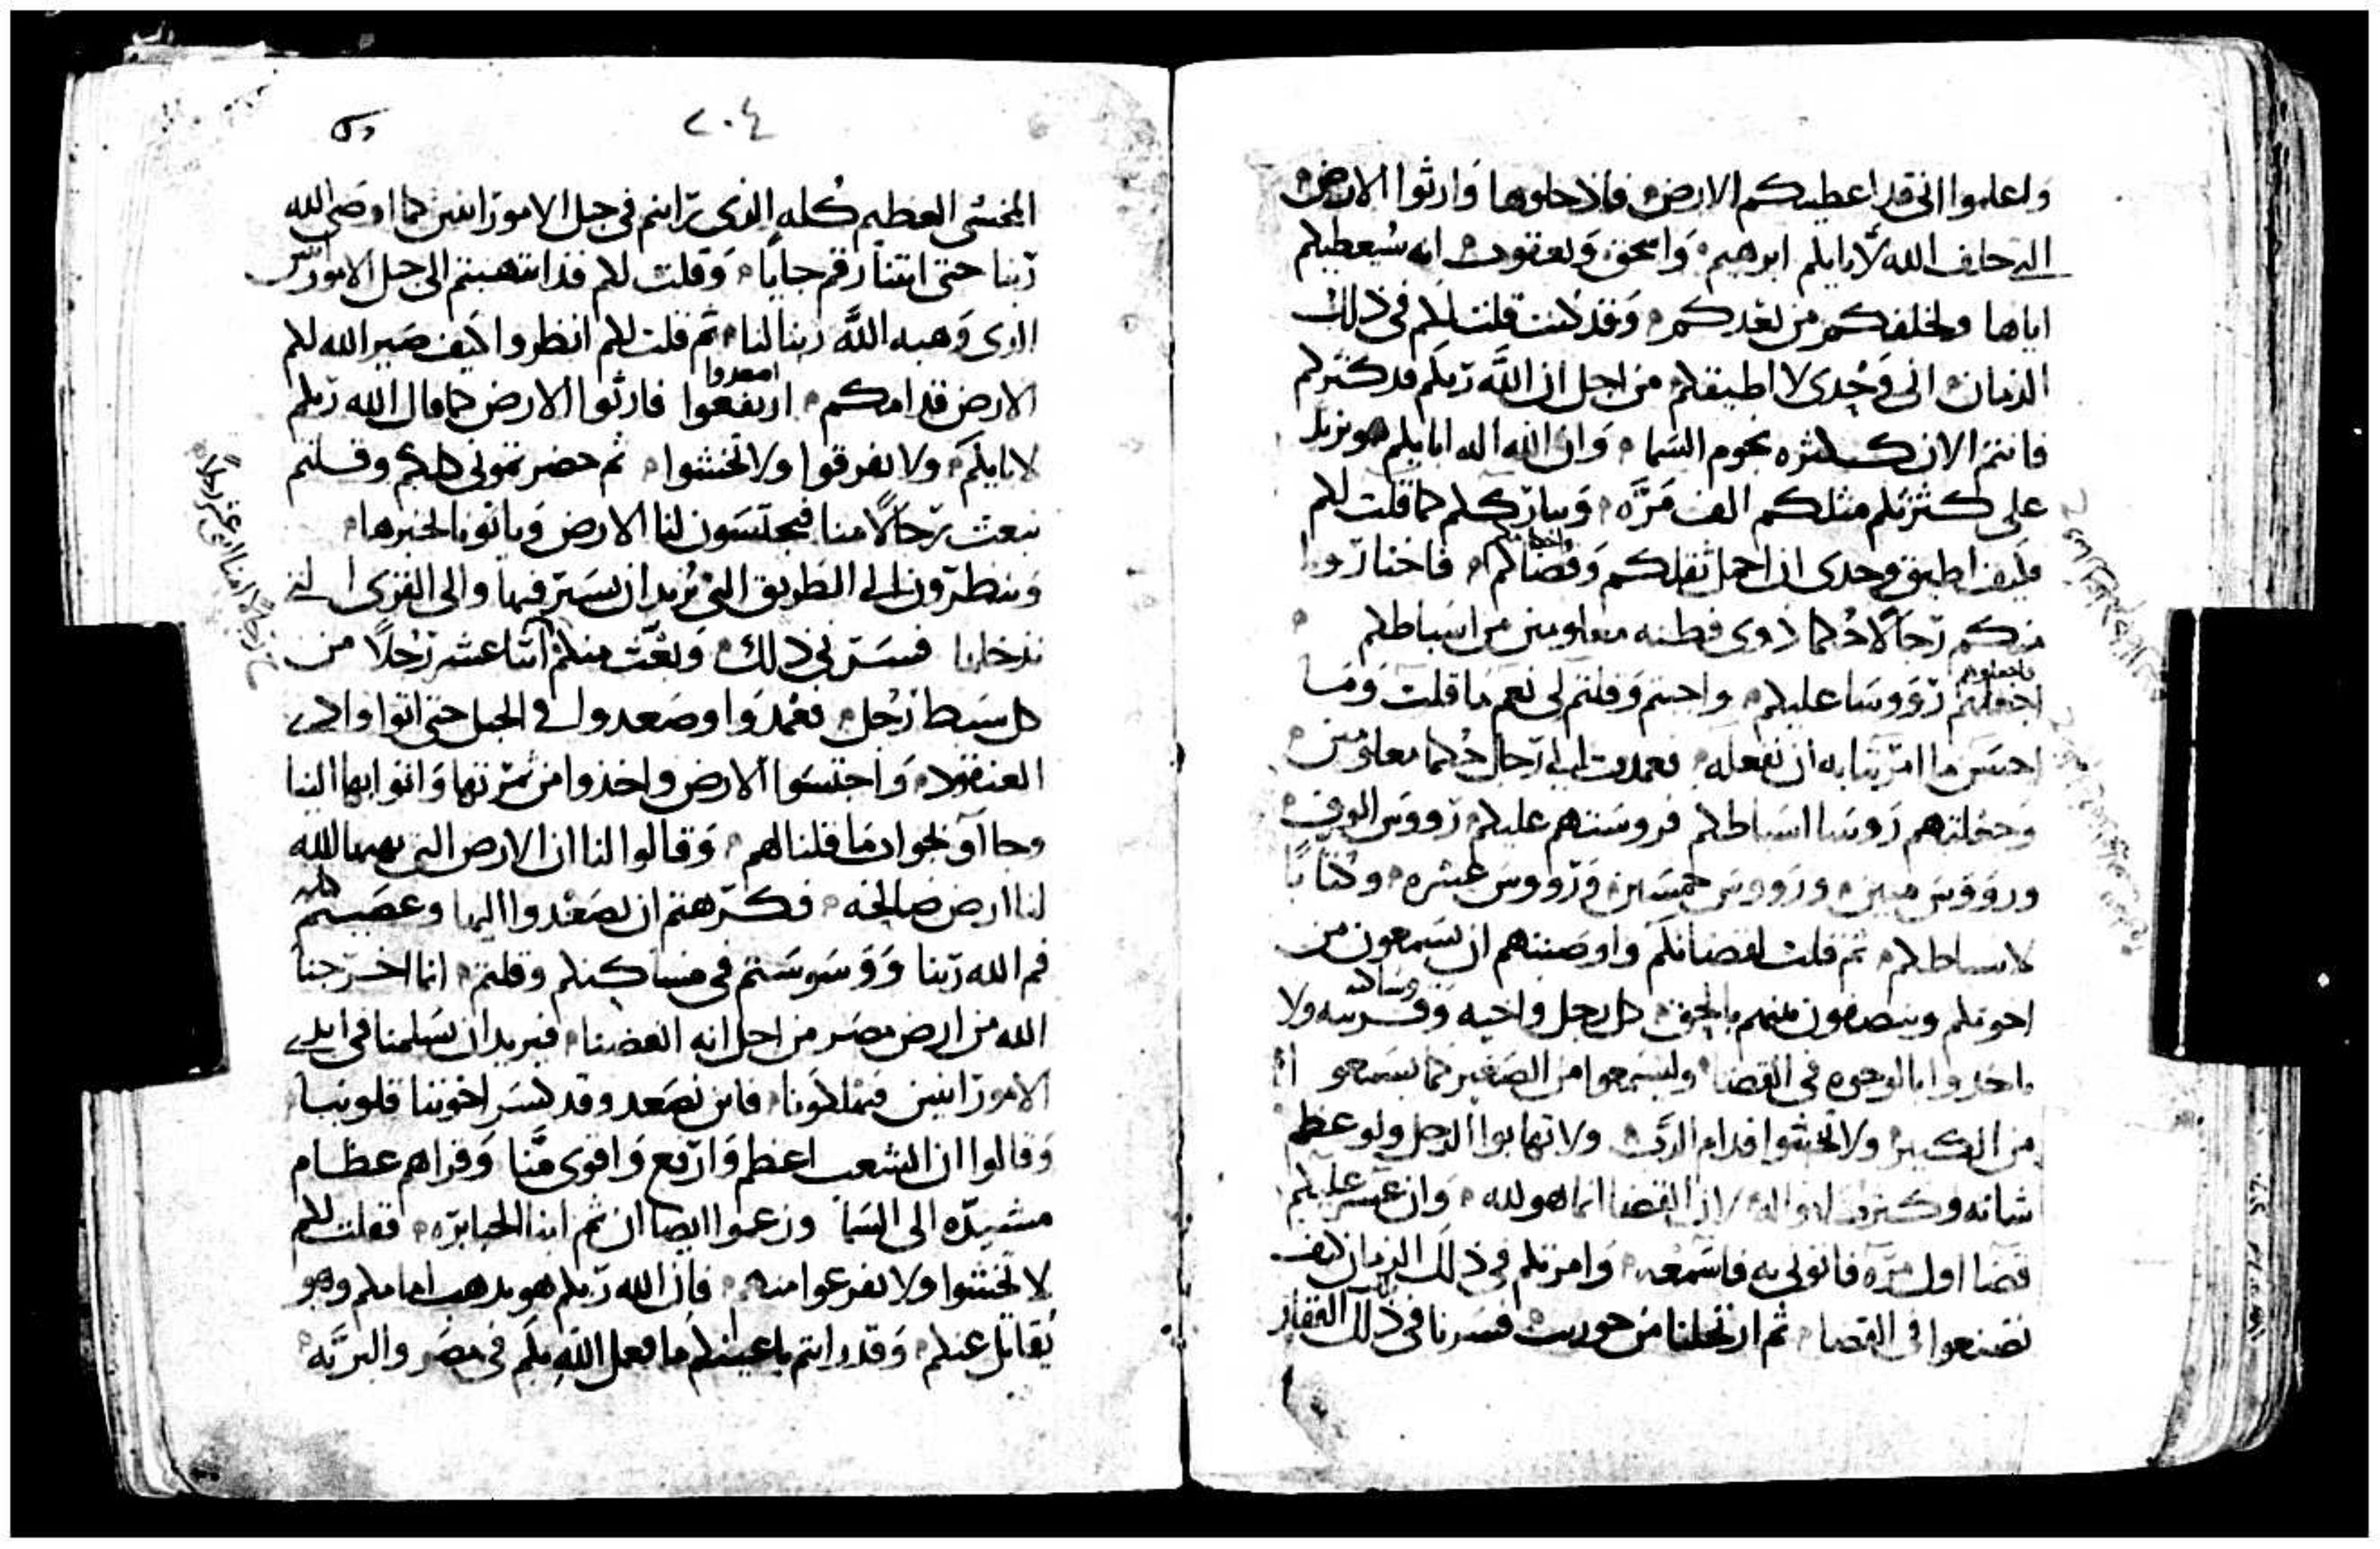 واعلموا انى قد اعطيتكم الارض فادخلوها وارثوا الارض
التى حلف الله لابايكم ابرهيم واسحق ويعقوب انه سيعطيكم
اياها ولخلفكم من بعدكم وقد كنت قلت لكم فى ذلك
الزمان انى وحدى لا اطيقكم من اجل ان الله ربكم قد كثركم
فانتم الان ككثره نجوم السما وان الله اله ابايكم هو يزيد
على كثرتكم مثلكم الف مره ويبارككم كما قلت لكم
فكيف اطيق وحدى ان احمل ثقلكم وقضاكم فاختاروا
منكم رجالا حكما ذوى فطنه معلومين من اسباطكم
فاجعلوهم
اجعلهم رووسا عليكم واجبتم وقلتم لى نعم ما قلت وما
احسن ما امرتنا به ان نفعله فعمدت الى رجال حكما معلومين
وجعلتهم روسا اسباطكم فروستهم عليكم رووس الوف
ورووس ميين ورووس خمسين ورووس عشره وكتابا
لاسباطكم ثم قلت لقضاتكم واوصيتهم ان يسمعون من
اخوتكم وينصفون منهم بالحق كل رجل واخيه وقريبه ولا
ياخدوا بالوجوه فى القضا وليسمعوا من الصغير كما يسمعو
من الكبير ولا تخشوا قدام الرب ولا تهابوا الرجل ولو عظم
شانه وكثرت امواله لان القضا انما هو لله وان عسر عليكم
قضا اول مره فاتونى به فاسمعه وامرتكم فى ذلك الزمان كيف
تصنعوا فى القضا ثم ارتحلنا من حوريب فسرنا فى ذلك القفار
٢٠٤
المخشى العظيم كله الذى رايتم فى جبل الامورانيين كما اوصى الله
ربنا حتى اتينا رقم جايا وقلت لكم قد انتهيتم الى جبل الامورانيين
الدى وهبه الله ربنا لنا ثم قلت لكم انظروا كيف صير الله لكم
اصعدوا
الارض قدامكم ارتفعوا فارثوا الارض كما قال الله ربكم
لابايكم ولا تفرقوا ولا تخشوا ثم حضرتمونى كلكم وقلتم
نبعث رجالا منا فيجتسون لنا الارض وياتونا بخبرها
وينظرون الى الطريق التى نريد ان نسير فيها والى القرى التى
ندخلها فسرنى ذلك وبعثت منكم اثنا عشر رجلا من
كل سبط رجل فعمدوا وصعدوا فى الجبل حتى اتوا وادى
العنقود واجتسوا الارض واخذوا من ثمرتها واتوا بها الينا
وجاآو بجواب ما قلنا لهم وقالوا لنا ان الارض التى يهبها الله
لنا ارض صالحه فكرهتم ان تصعدوا اليها وعصيتم
فم الله ربنا ووسوستم فى مساكنكم وقلتم انما اخرجنا
الله من ارض مصر من اجل انه ابغضنا فيريد ان يسلمنا فى ايدى
الامورانيين فيهلكونا فاين نصعد وقد كسر اخوتنا قلوبنا
وقالوا ان الشعب اعظم وارفع واقوى منا وقراهم عظام
مشيده الى السما وزعموا ايضا ان ثم ابنا الجبابره فقلت لكم
لا تخشوا ولا تفزعوا منهم فان الله ربكم هو يذهب امامكم وهو
يقاتل عنكم وقد رايتم باعينكم ما فعل الله بكم فى مصر والبريه